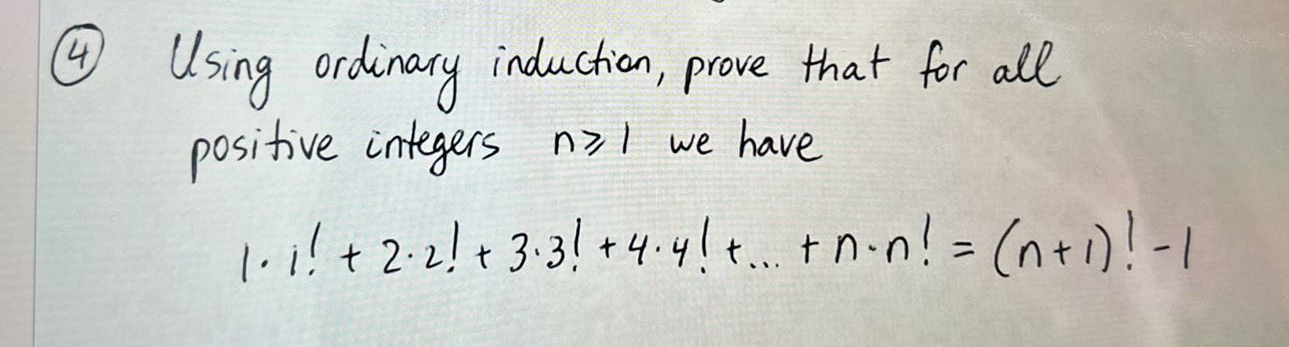 ④ Using ordinary induction, prove that for all
positive integers n≥1 we have
1·1! + 2·2! + 3·3! + 4·4! + ... + n·n! = (n+1)! - 1